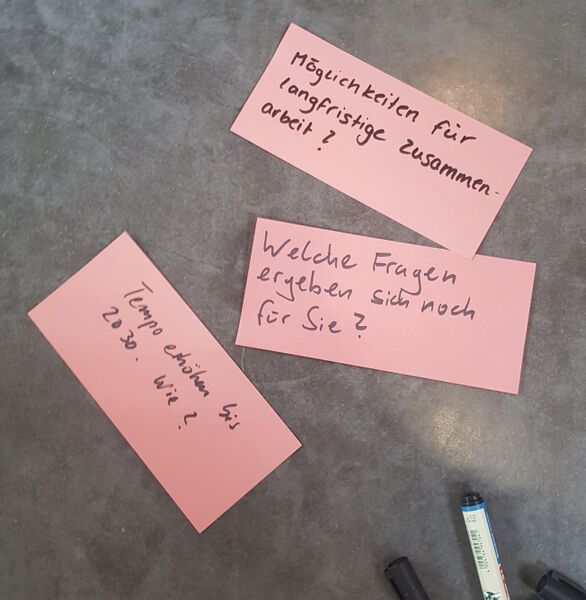 Möglichkeiten für
langfristige Zusammen-
arbeit?
Welche Fragen
ergeben sich noch
für Sie?
Tempo erhöhen bis
2030. Wie?